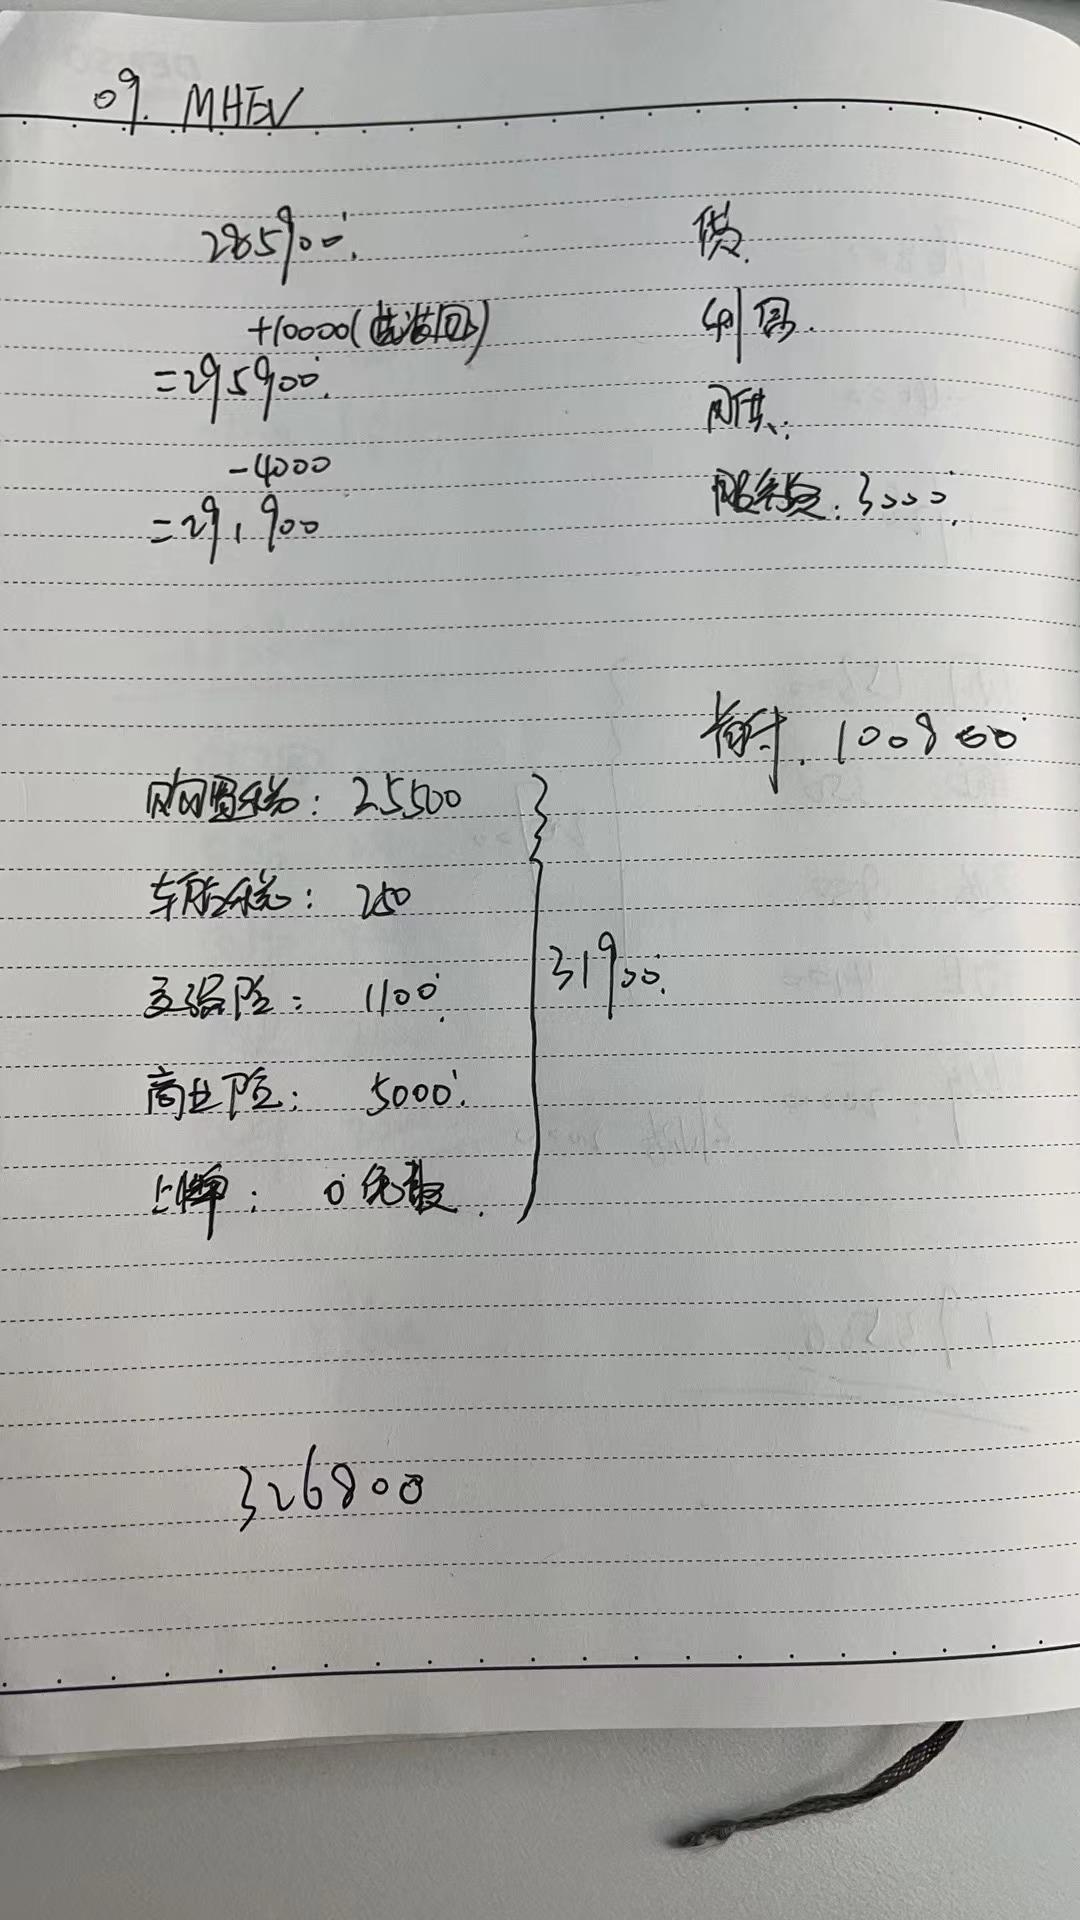 09. MHEV
285900.
贷.
+10000(选装包)
利息.
=295900.
月供:
-4000
服务费: 3000.
=291900
首付. 100800
购置税: 25500
车船税: 250
31900.
交强险: 1100.
商业险: 5000.
上牌: 0免费.
326800